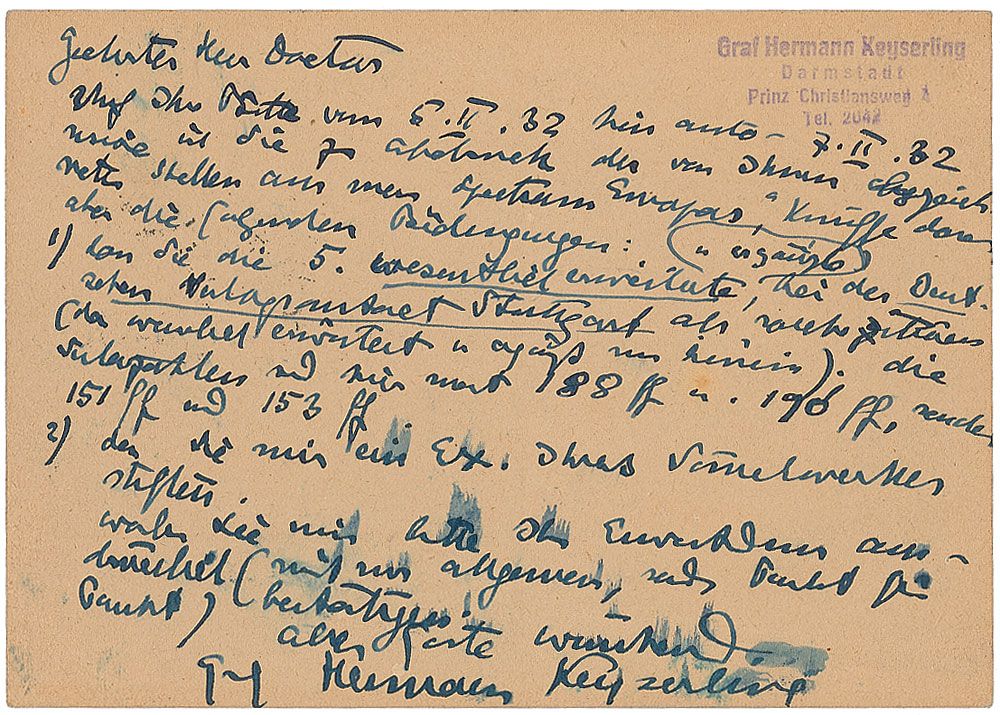 Graf Hermann Keyserling
Darmstadt
Prinz Christiansweg 4
Tel. 2042
7. II. 32
Geehrter Herr Doctor
Auf Ihre Bitte vom 6. II. 32 hin auto-
risiere ich Sie z. Abdruck der von Ihnen
neten Stellen aus mein Spektrum Europas, Knüpfe daran
aber die folgenden Bedingungen: (u ergänzte)
1) dass Sie die 5. wesentlich erweiterte, bei der Deut-
schen Verlagsanstalt Stuttgart als solche zitieren
(das wurde erweitert u ergänzt muss hinein). die
sind hier nicht 188 ff u. 196 ff, sondern
151 ff und 153 ff
2) dass Sie mir ein Ex. Ihres Sammelwerkes
stiften.
Wollen Sie mir bitte Ihr Einverständnis aus-
drücklich (nicht nur allgemein, sondern Punkt für
Punkt) bestätigen.
Alles Gute wünschend
Graf Hermann Keyserling